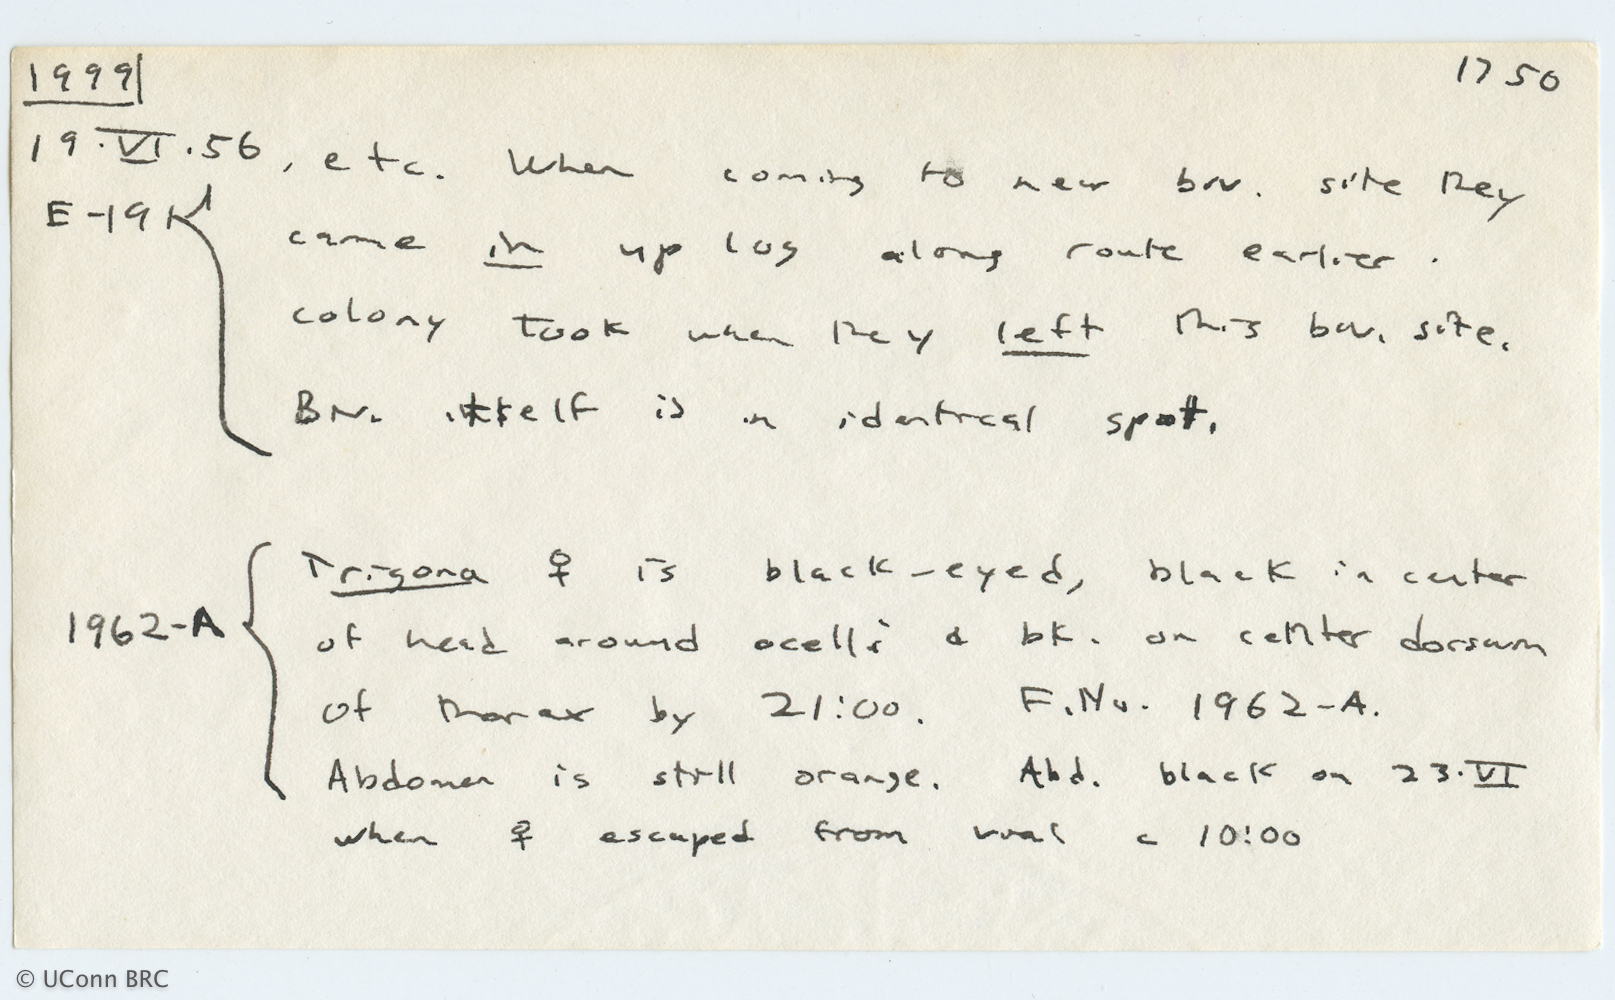 1999 1750
19.VI.56, etc. When coming to new biv. site they
E-19 came in up log along route earlier.
colony took when they left this biv. site.
Biv. itself is in identical spot.
Trigona ♀ is black-eyed, black in center
1962-A of head around ocelli & bk. on center dorsum
of thorax by 21:00. F.No. 1962-A.
Abdomen is still orange. Abd. black on 23.VI
when ♀ escaped from vial c 10:00
© UConn BRC